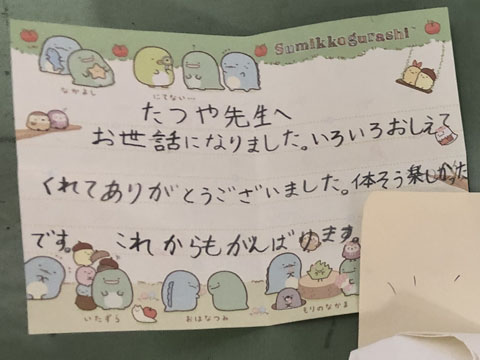 Sumikkogurashi
なかよし
にてない…
たつや先生へ
お世話になりました。いろいろおしえて
くれてありがとうございました。体そう楽しかった
です。 これからもがんばります。
いたずら
おはなつみ
もりのなかま